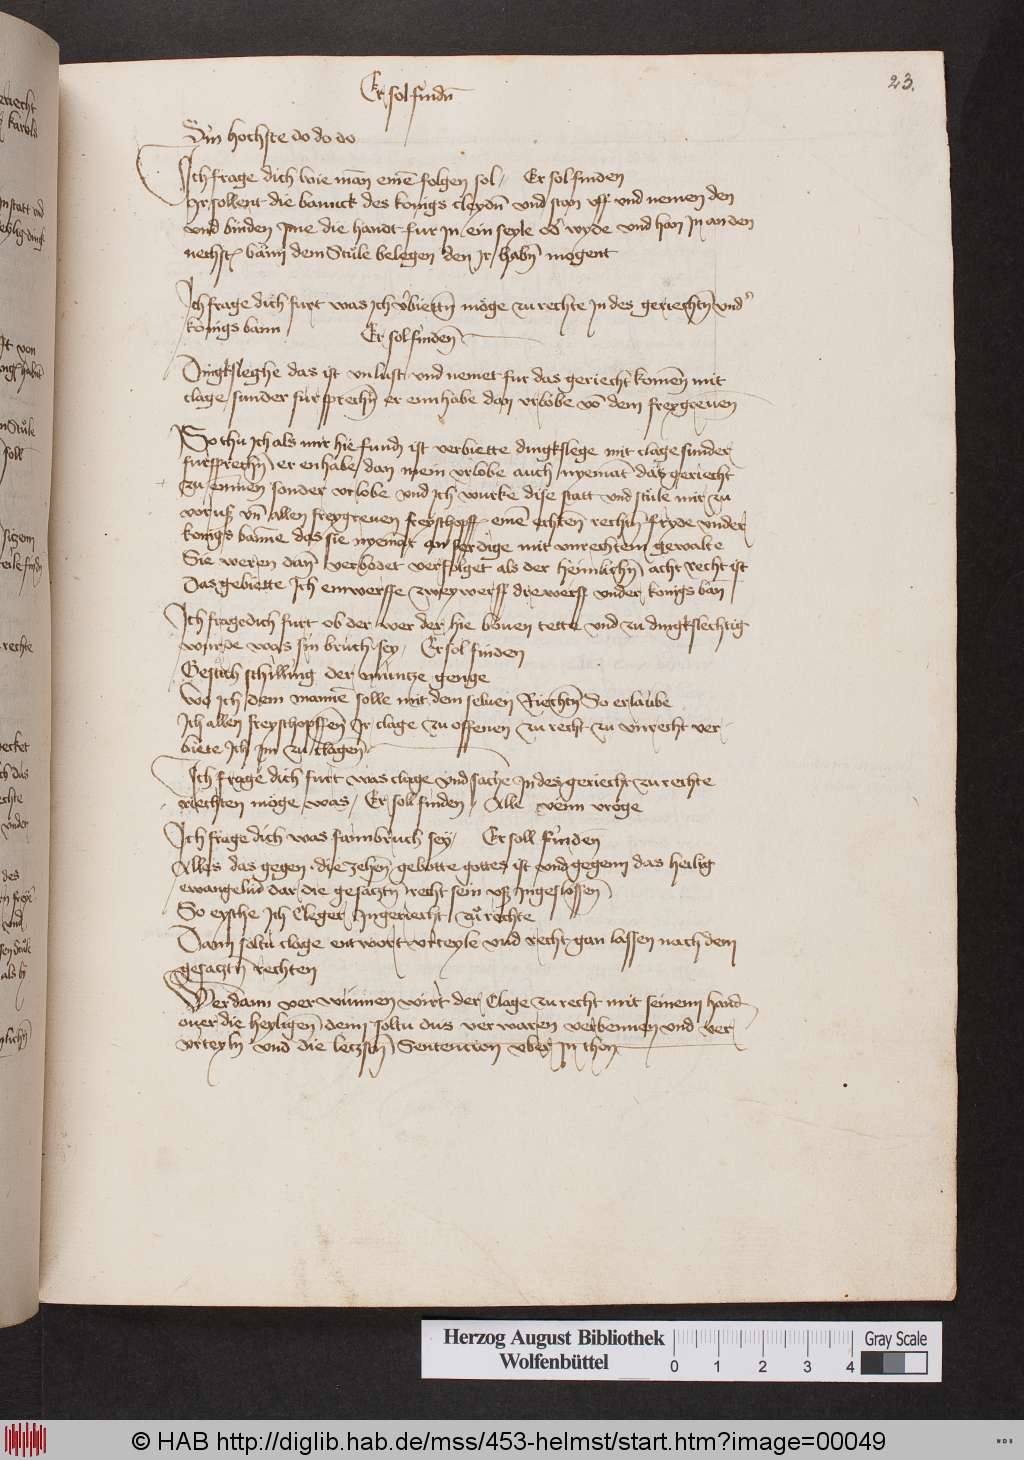 23.
Er sol findn̄
Din hochste do do do
Ich frage dich wie man eine͂ folgen sol / Er sol finden
Ir sollent die banck des konigs cleydn̄ vnd stan vff vnd nemen den
vnd binden Ime die handt fur In ein seyle od' wyde vnd han In an den
nechst baum dem Stule belegen den Ir habn̄ mogent
Ich frage dich furt was ich v'biettn̄ möge zu rechte In des geriechtn̄ vnd
konigs bann Er sol finden
Dingkſleghe das ist vnlust vnd nemet fur das geriecht komen̄ mit
clage sunder fursprechn̄ er ennhabe dan vrlobe vō dem freygreuen
So thu Ich als mir hie fundn ist verbiette dingkslege mit clage sunder
fursprechn̄ er enhabe dan mein vrlobe auch nyemat das geriecht
zu sonder vrlobe vnd ich wurke dise statt vnd stule mir zu
voruß vn̄ allen freygreuen freyschopff eine͂ echten rechtn fryde vnder
konigs banne das sie nyemat an ferdige mit vnrechtem gewalte
Sie weren dan̄ verbodet verfolget als der heimlichn̄ acht recht ist
Das gebiette Ich einwerffe zweywerff drewerff vnder konigs ban
Ich frage dich furt ob der wer der hie boven tette vnd zu dingkslechtig
wurde was sin bruch sey / Er sol finden
schilling der muntze genge
Wo ich dem manne solle mit dem seluen Riechtn̄ So erlaube
Ich allen freyschopffen̄ Ir clage zu offenen zu recht zu vnrecht ver
biete Ich Im zu clagen̄
Ich frage dich furt was clage vnd sache In des geriecht zu rechte
riechten möge was / Er soll finden / Alle venn vroge
Ich frage dich was fannbruch sey / Er soll finden
Alles das gegen die zehen gebotte gottes ist vnd gegenn das heilig
ewangeliū dar die gesatztn̄ recht sein vß Ingeslossen
So eysche Ich Cleger Ingeriecht zu rechte
Dann soltu clage entwort vrteyle vnd recht gan lassen nach dem
gesatztn̄ rechten
Wer dann verwunnen wirt der Clage zu recht mit seinem hand
ouer die heyligen denn soltu dus verwaren verbennen vnd ver
vrteyln vnd die letzstn̄ Sentention vber In thon
Herzog August Bibliothek
Wolfenbüttel
0 1 2 3 4
Gray Scale
© HAB http://diglib.hab.de/mss/453-helmst/start.htm?image=00049
WDB